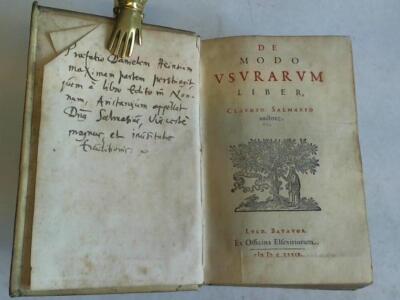 Præfatio Danielem Heinsium
maximam partem perstringit,
quem à libro edito in Non-
num, Aristarchum appellat
Dns Salmasius, Vir certè
magnus, et inusitatæ
Eruditionis.
DE
MODO
VSVRARVM
LIBER,
CLAVDIO SALMASIO
auctore.
LVGD. BATAVOR.
Ex Officina Elseviriorum.